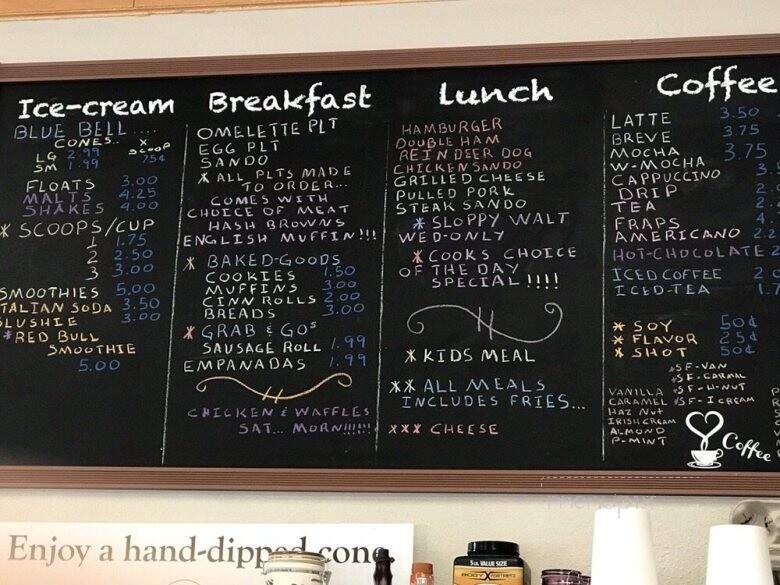 Ice-cream
BLUE BELL....
CONES.. X
LG 2.99 SCOOP
SM 1.99 75¢
FLOATS 3.00
MALTS 4.25
SHAKES 4.00
* SCOOPS/CUP
1 1.75
2 2.50
3 3.00
SMOOTHIES 5.00
TALIAN SODA 3.50
LUSHIE 3.00
* RED BULL
SMOOTHIE
5.00
Breakfast
OMELETTE PLT
EGG PLT
SANDO
* ALL PLTS MADE
TO ORDER...
COMES WITH
CHOICE OF MEAT
HASH BROWNS
ENGLISH MUFFIN!!!
* BAKED-GOODS
COOKIES 1.50
MUFFINS 3.00
CINN ROLLS 2.00
BREADS 3.00
* GRAB & GOS
SAUSAGE ROLL 1.99
EMPANADAS 1.99
CHICKEN & WAFFLES
SAT... MORN!!!!!!
Lunch
HAMBURGER
DOUBLE HAM
REINDEER DOG
CHICKEN SANDO
GRILLED CHEESE
PULLED PORK
STEAK SANDO
* SLOPPY WALT
WED-ONLY
* COOKS CHOICE
OF THE DAY
SPECIAL !!!!
* KIDS MEAL
** ALL MEALS
INCLUDES FRIES...
*** CHEESE
Coffee
LATTE 3.50
BREVE 3.75
MOCHA 3.75
W-MOCHA
CAPPUCCINO
DRIP
TEA
FRAPS
AMERICANO
HOT-CHOCOLATE
ICED COFFEE
ICED-TEA
* SOY 50¢
* FLAVOR 25¢
* SHOT 50¢
*SF-VAN
*SF-CARML
VANILLA *SF-H-NUT
CARAMEL *SF-I CREAM
HAZ NUT
IRISH CREAM
ALMOND
P-MINT
Coffee
Enjoy a hand-dipped cone.
5 LB. VALUE SIZE
BODY FORTRESS